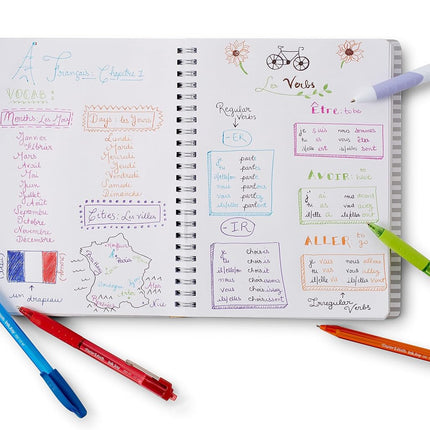 Français: Chapitre 1
VOCAB:
Months: Les Mois
Janvier
Février
Mars
Avril
Mai
Juin
Juillet
Août
Septembre
Octobre
Novembre
Décembre
Days: les Jours
Lundi
Mardi
Mercredi
Jeudi
Vendredi
Samedi
Dimanche
Cities: Les Villes
Paris
Nice
un drapeau
Les Verbs
Regular
Verbs
-ER
je parle
tu parles
il/elle/on parle
nous parlons
vous parlez
ils/elles parlent
-IR
je choisis
tu choisis
il/elle/on choisit
nous choisissons
vous choisissez
ils/elles choisissent
Être: to be
je suis nous sommes
tu es vous êtes
il/elle est ils/elles sont
AVOIR to have
j'ai nous avons
tu as vous avez
il/elle a ils/elles ont
ALLER to go
je vais nous allons
tu vas vous allez
il/elle va ils/elles vont
Irregular
Verbs